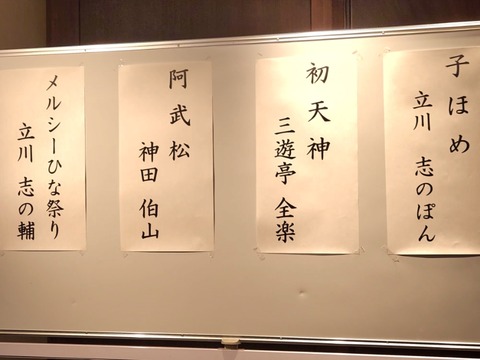 子ほめ
立川 志のぽん
初天神
三遊亭 全楽
阿武松
神田 伯山
メルシーひな祭り
立川 志の輔